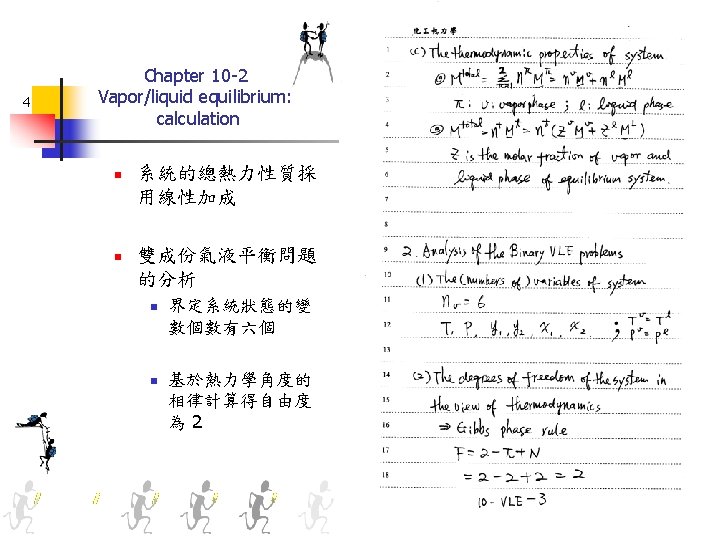 4
Chapter 10-2
Vapor/liquid equilibrium:
calculation
系統的總熱力性質採
用線性加成
雙成份氣液平衡問題
的分析
界定系統狀態的變
數個數有六個
基於熱力學角度的
相律計算得自由度
為 2
化工熱力學
1 (c) The thermodynamic properties of system
2 ⓐ M^total = Σ n^π M^π = n^v M^v + n^l M^l
3 π : v : vapor phase ; l : liquid phase
4 ⓑ M^total = n^t M^t = n^t (z^v M^v + z^l M^l)
5 z is the molar fraction of vapor and
6 liquid phase of equilibrium system.
7
8
9 2. Analysis of the Binary VLE problems
10 (1) The (numbers of) variables of system
11 n_v = 6
12 T, P, y₁, y₂, x₁, x₂ ; T^v = T^l
P^v = P^l
13
14 (2) The degrees of freedom of the system in
15 the view of thermodynamics
16 ⇒ Gibbs phase rule
17 F = 2 - π + N
18 = 2 - 2 + 2 = 2
10 - VLE - 3